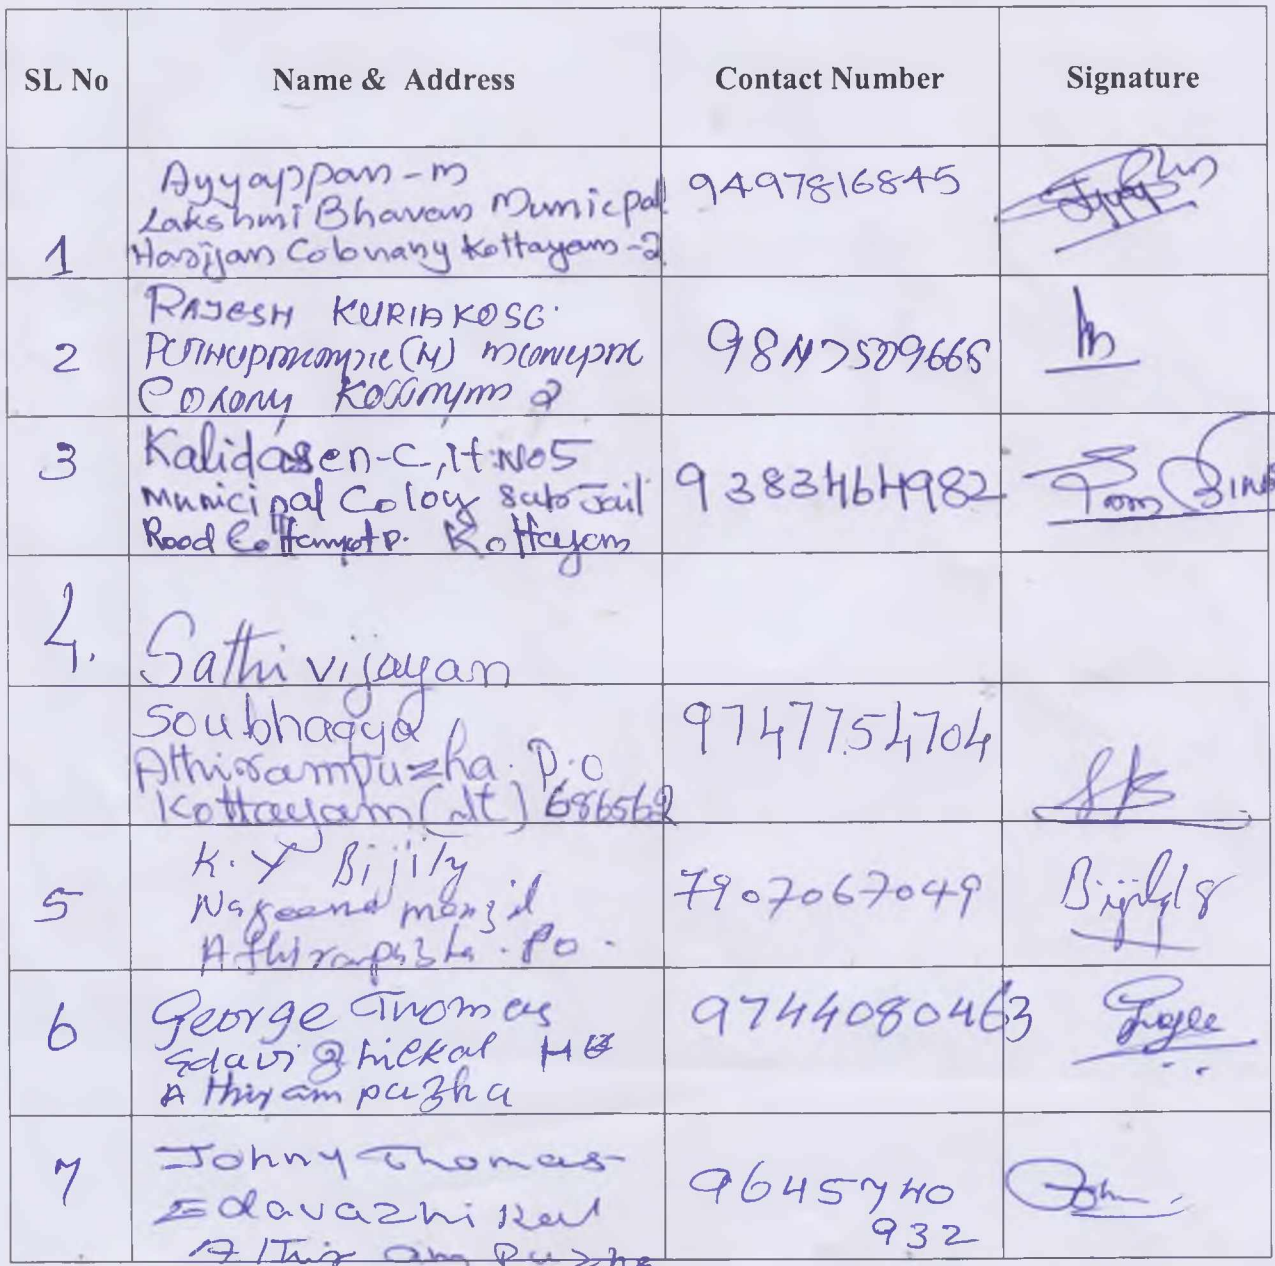 SL No Name & Address Contact Number Signature
Ayyappan - m
Lakshmi Bhavan Municpal
1 Harijan Colonany Kottayam - 2
9497816845
RAJESH KURIAKOSE
2
COLONY
Kalidasen-C, H.No5
3 Municipal Colony Sub Jail
Road Kottayam
9383464982
4. Sathi vijayan
Soubhagya
Athirampuzha. P.O
Kottayam (dt) 686562
9747754704
K. Y Bijily
5 Nageena manzil
Po.
7907067049
Bijily
6 George Thomas
Athirampuzha
9744080463
Johny Thomas
7 Edavazhikal
Athirampuzha
9645740
932